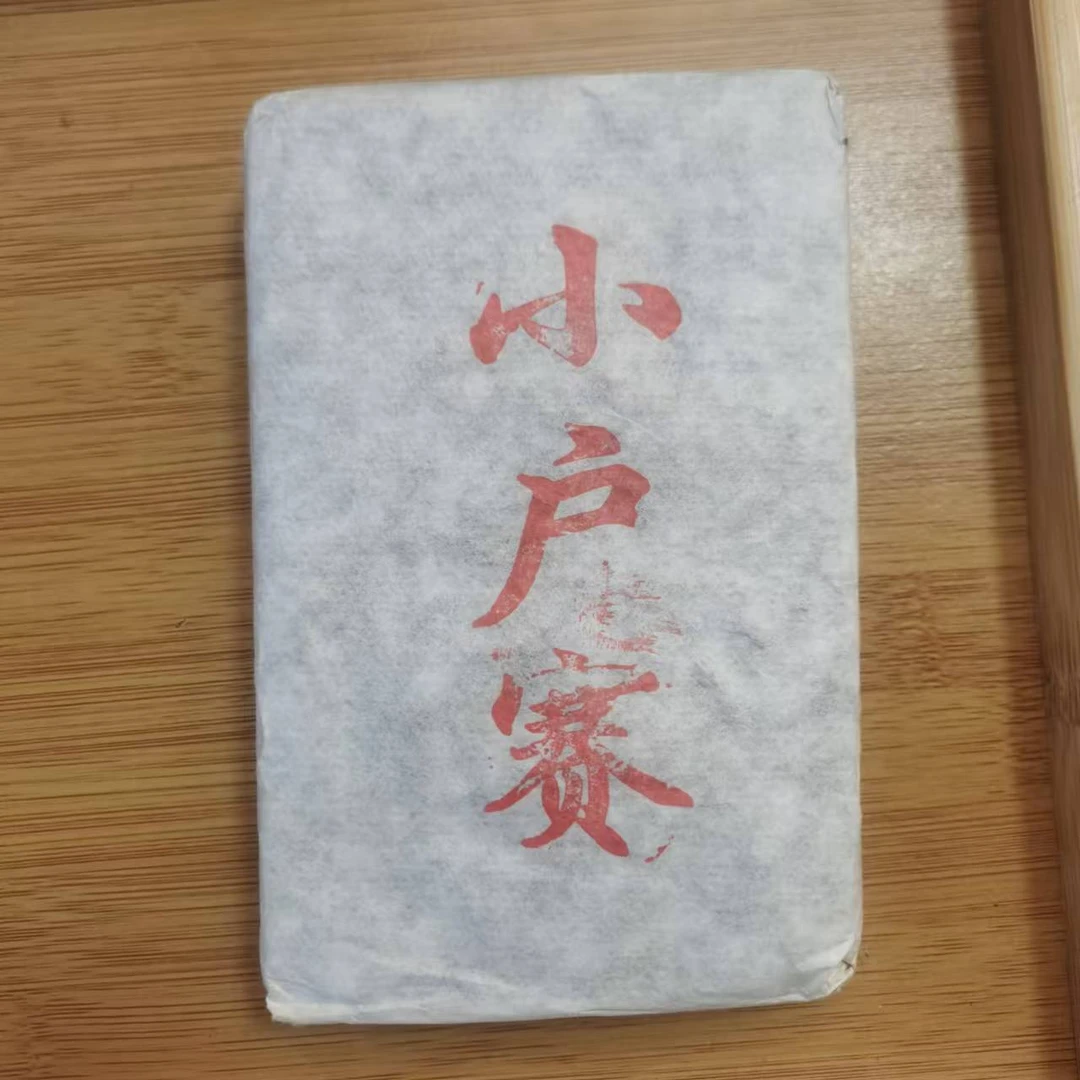 小户赛